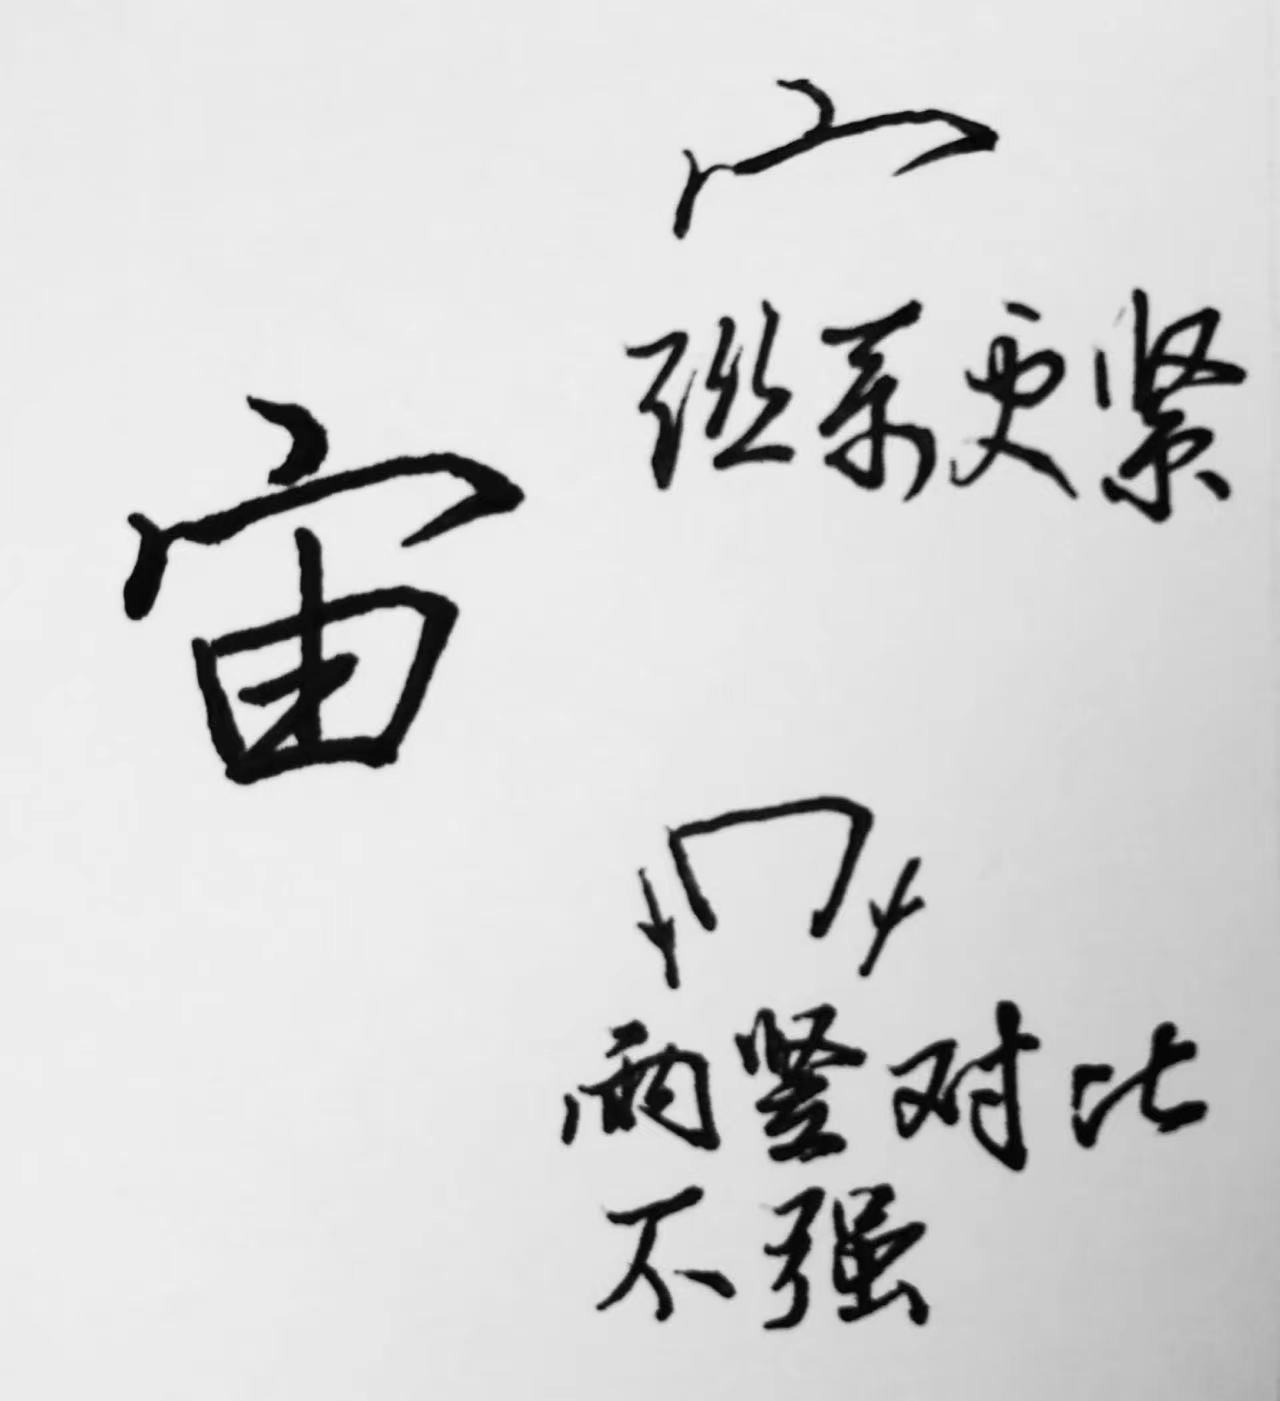 宀
聯系更紧
宙
冂
两竖对比
不强